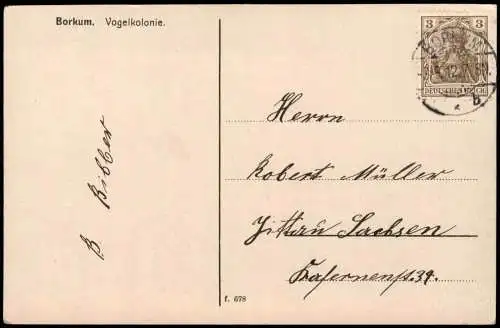 Borkum. Vogelkolonie.
3 3
DEUTSCHES REICH
BORKUM
12.7
b
Herrn
Robert Müller
Zittau Sachsen
Kasernenst. 39.
B. Bibber
f. 678